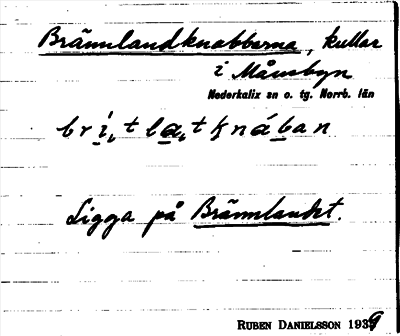 Brännlandknabbarna, kullar
i Månsbyn
Nederkalix sn o. tg. Norrb. län
Ligga på Brännlandet.
RUBEN DANIELSSON 1939